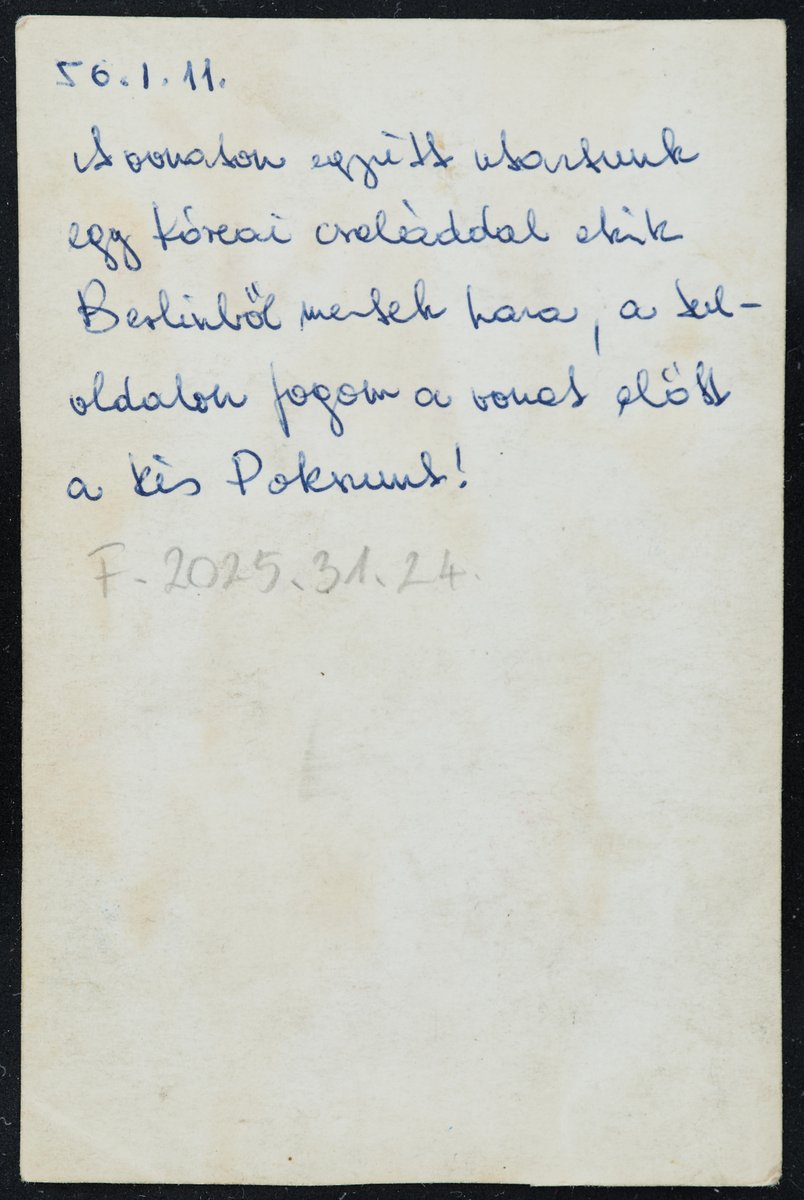 56.1.11.
A vonaton együtt utaztunk
egy kóreai családdal akik
Berlinből mentek haza, a túl-
oldalon fogom a vonat előtt
a kis
F-2025.31.24.